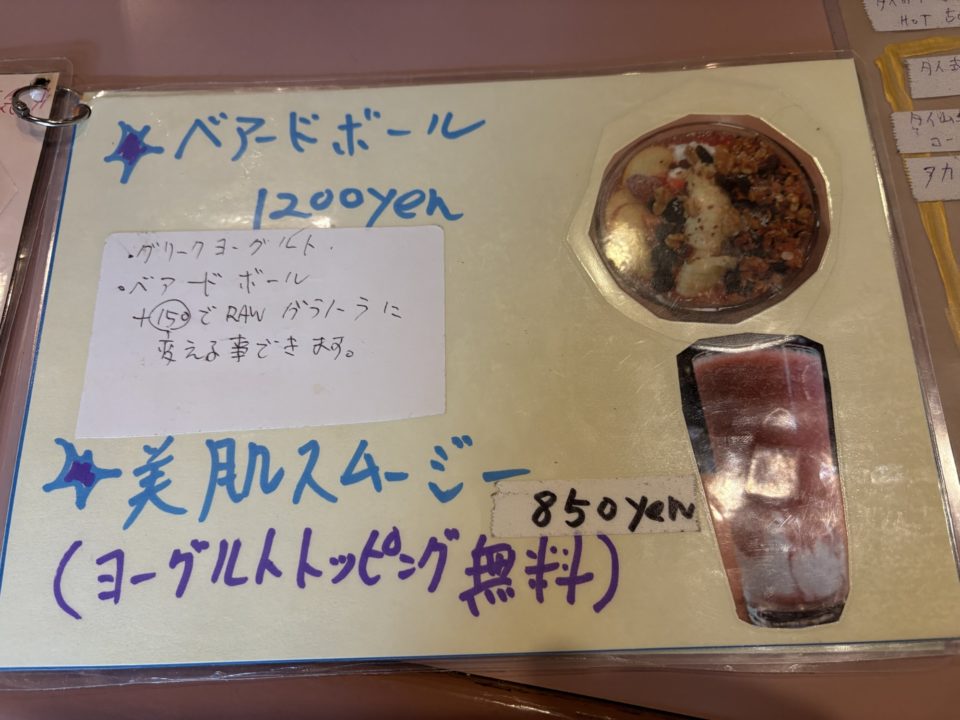 ベアードボール
1200yen
・グリークヨーグルト
・ベアードボール
+150でRAWグラノーラに
変える事できます。
美肌スムージー
850yen
(ヨーグルトトッピング無料)
HOT
タカ